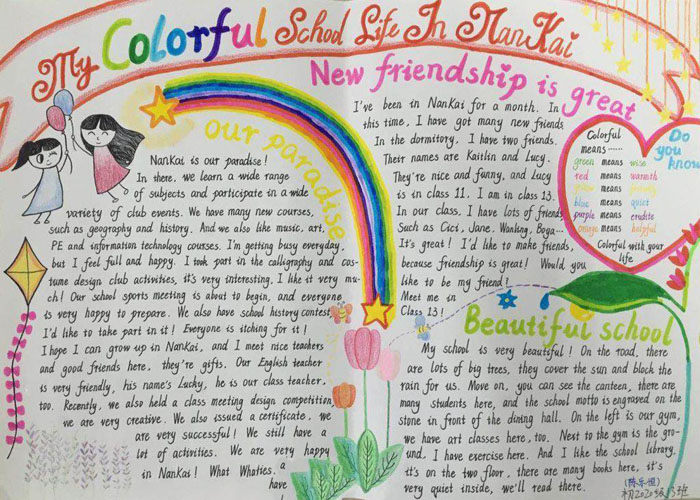 My Colorful School Life In NanKai
our paradise
NanKai is our paradise!
In there, we learn a wide range
of subjects and participate in a wide
variety of club events. We have many new courses,
such as geography and history. And we also like music, art,
PE and information technology courses. I'm getting busy everyday,
but I feel full and happy. I took part in the calligraphy and cos-
tume design club activities, it's very interesting, I like it very mu-
ch! Our school sports meeting is about to begin, and everyone
is very happy to prepare. We also have school history contest,
I'd like to take part in it! Everyone is itching for it!
I hope I can grow up in NanKai, and I meet nice teachers
and good friends here, they're gifts. Our English teacher
is very friendly, his name's Lucky, he is our class teacher,
too. Recently, we also held a class meeting design competition,
we are very creative. We also issued a certificate, we
are very successful! We still have a
lot of activities. We are very happy
in NanKai! What Whaties. a
have
New friendship is great
I've been in NanKai for a month. In
this time, I have got many new friends.
In the dormitory, I have two friends.
Their names are Kaitlin and Lucy.
They're nice and funny, and Lucy
is in class 11. I am in class 13.
In our class, I have lots of friends,
Such as Cici, Jane, Wanling, Boga...
It's great! I'd like to make friends,
because friendship is great! Would you
like to be my friend!
Meet me in
Class 13!
Do
you
know
Colorful
means ......
green means wise
red means warmth
yellow means
blue means quiet
purple means erudite
orange means helpful
Colorful with your
life
Beautiful school
My school is very beautiful! On the road, there
are lots of big trees, they cover the sun and block the
rain for us. Move on, you can see the canteen, there are
many students here, and the school motto is engraved on the
stone in front of the dining hall. On the left is our gym,
we have art classes here, too. Next to the gym is the gro-
und, I have exercise here. And I like the school library,
it's on the two floor, there are many books here, it's
very quiet inside, we'll read there.
初2020级13班